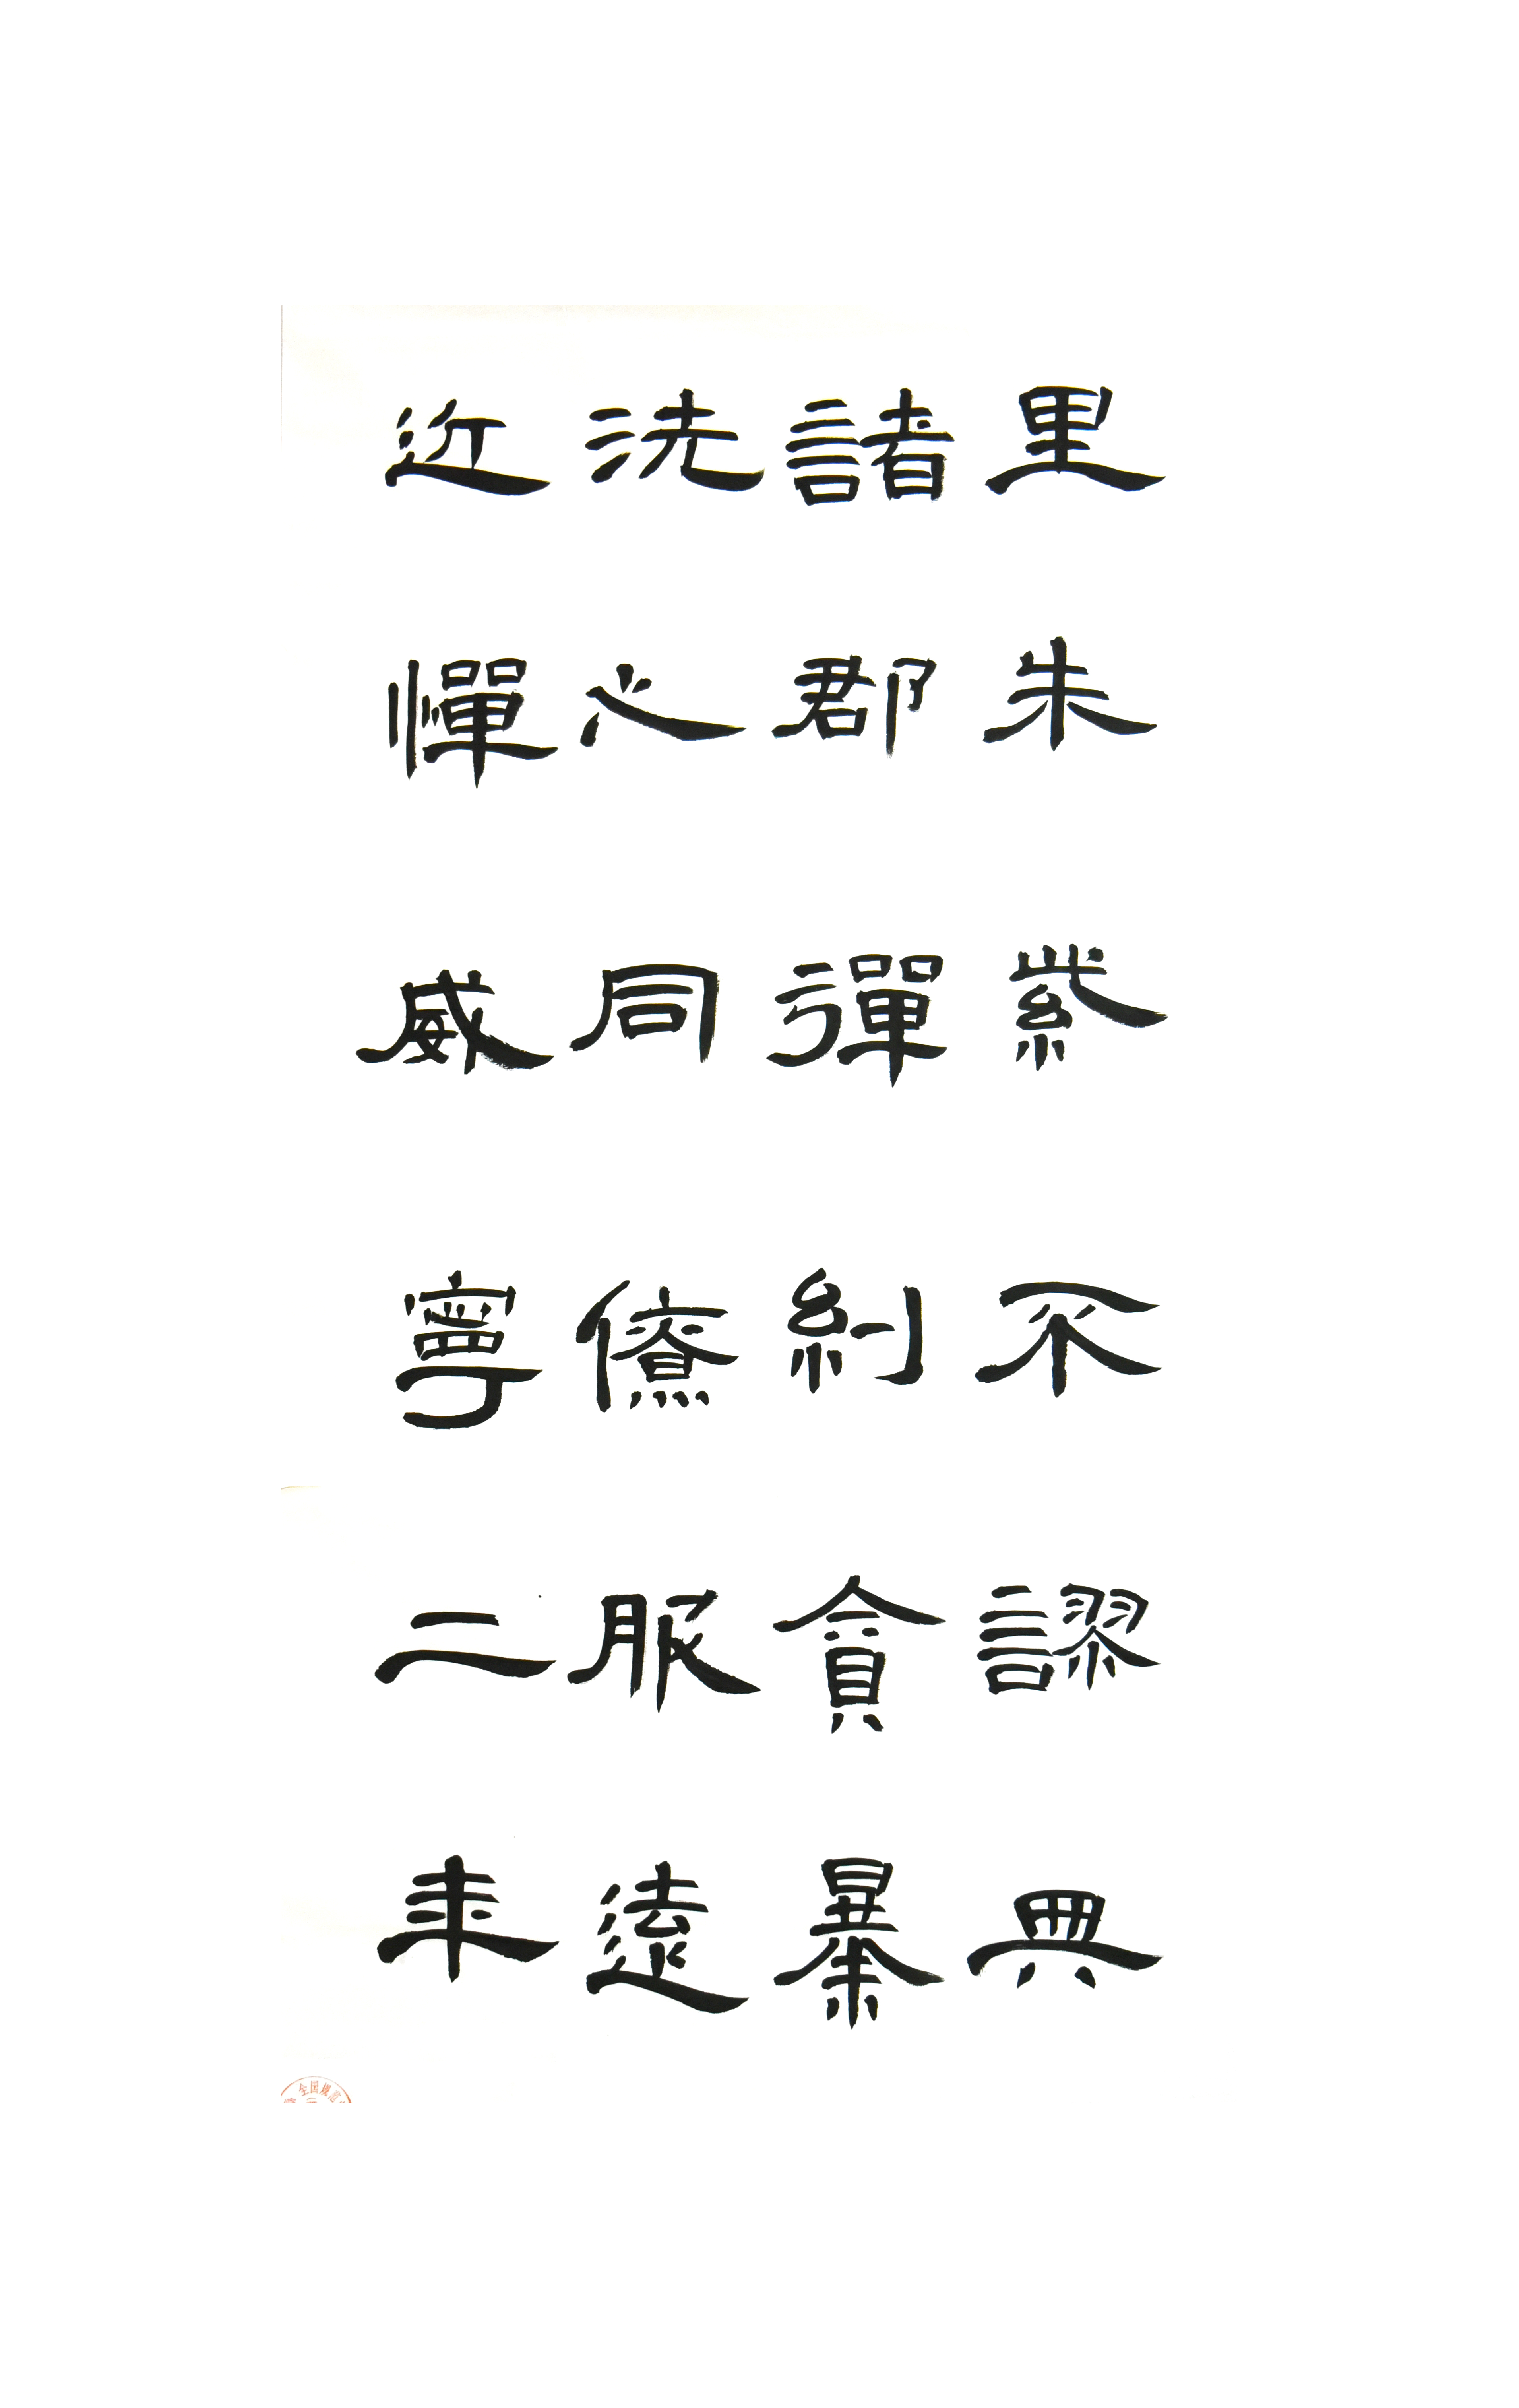 里朱紫不謬典
諸郡彈糾貪暴
洗心同僚服遠
近憚威寧二年
全国